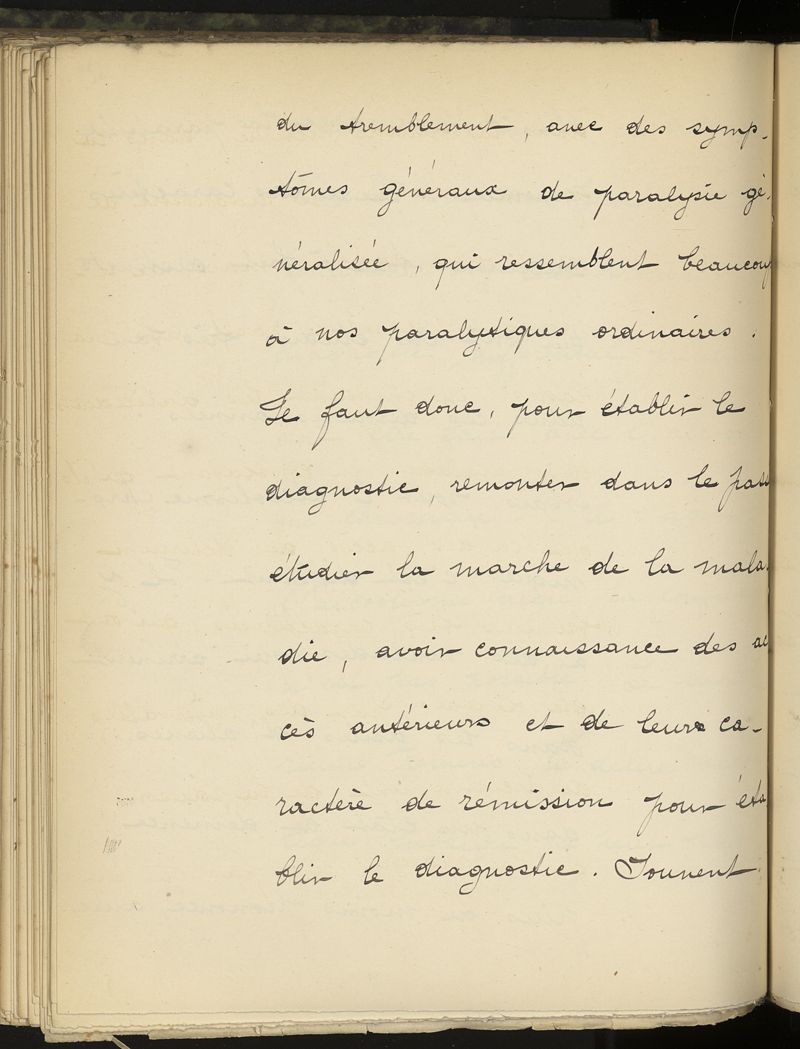 du tremblement, avec des symp-
tômes généraux de paralysie gé-
néralisée, qui ressemblent beaucoup
à nos paralytiques ordinaires.
Il faut donc, pour établir le
diagnostic, remonter dans le
étudier la marche de la mala-
die, avoir connaissance des ac
cès antérieurs et de leurs ca-
ractère de rémission pour éta
blir le diagnostic. Souvent